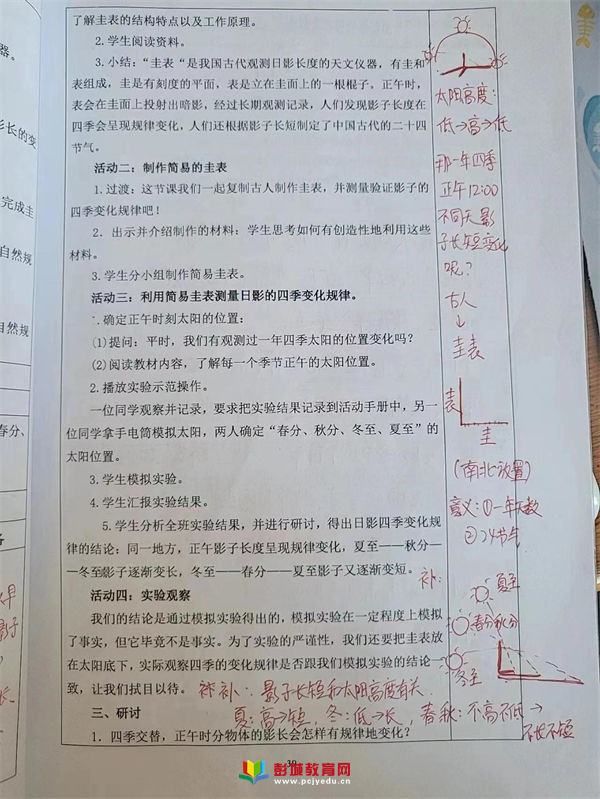 了解圭表的结构特点以及工作原理。
2.学生阅读资料。
3.小结：“圭表“是我国古代观测日影长度的天文仪器，有圭和
表组成，圭是有刻度的平面，表是立在圭面上的一根棍子。正午时，
表会在圭面上投射出暗影，经过长期观测记录，人们发现影子长度在
四季会呈现规律变化，人们还根据影子长短制定了中国古代的二十四
节气。
活动二：制作简易的圭表
1.过渡：这节课我们一起复制古人制作圭表，并测量验证影子的
四季变化规律吧！
2. 出示并介绍制作的材料：学生思考如何有创造性地利用这些
材料。
3.学生分小组制作简易圭表。
活动三：利用简易圭表测量日影的四季变化规律。
确定正午时刻太阳的位置：
(1)提问：平时，我们有观测过一年四季太阳的位置变化吗？
(2)阅读教材内容，了解每一个季节正午的太阳位置。
2.播放实验示范操作。
一位同学观察并记录，要求把实验结果记录到活动手册中，另一
位同学拿手电筒模拟太阳，两人确定“春分、秋分、冬至、夏至”的
太阳位置。
3.学生模拟实验。
4.学生汇报实验结果。
5.学生分析全班实验结果，并进行研讨，得出日影四季变化规
律的结论：同一地方，正午影子长度呈现规律变化，夏至——秋分—
—冬至影子逐渐变长，冬至——春分——夏至影子又逐渐变短。
活动四：实验观察
我们的结论是通过模拟实验得出的，模拟实验在一定程度上模拟
了事实，但它毕竟不是事实。为了实验的严谨性，我们还要把圭表放
在太阳底下，实际观察四季的变化规律是否跟我们模拟实验的结论一
致，让我们拭目以待。
补：影子长短和太阳高度有关.
夏：高→短，冬：低→长，春秋：不高不低→
不长不短
三、研讨
1. 四季交替，正午时分物体的影长会怎样有规律地变化？
太阳高度：
低→高→低
那一年四季
正午12:00
不同天影
子长短变化
呢？
古人
↓
圭表
表
圭
(南北放置)
意义：①一年天数
②24节气
补：
夏至
春分秋分
冬至
影长的变
完成圭
自然规
自然规
春分、
彭城教育网
www.pcjyedu.cn